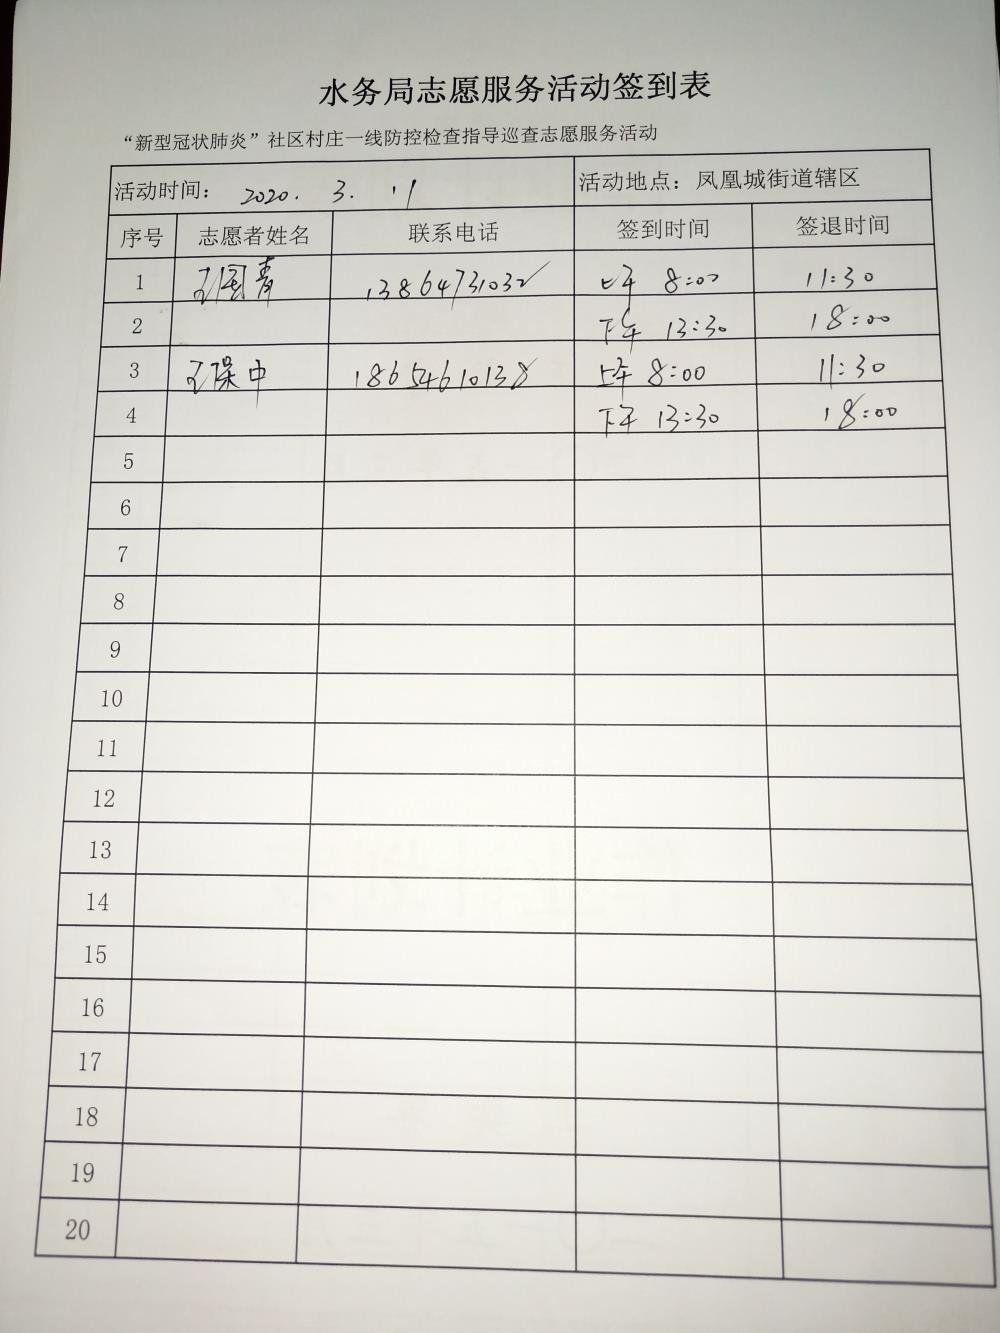 水务局志愿服务活动签到表
“新型冠状肺炎”社区村庄一线防控检查指导巡查志愿服务活动
活动时间： 2020. 3. 11 活动地点：凤凰城街道辖区
序号 志愿者姓名 联系电话 签到时间 签退时间
1 王国青 13864731032 上午 8:00 11:30
2 下午 13:30 18:00
3 王保中 18654610138 上午 8:00 11:30
4 下午 13:30 18:00
5
6
7
8
9
10
11
12
13
14
15
16
17
18
19
20